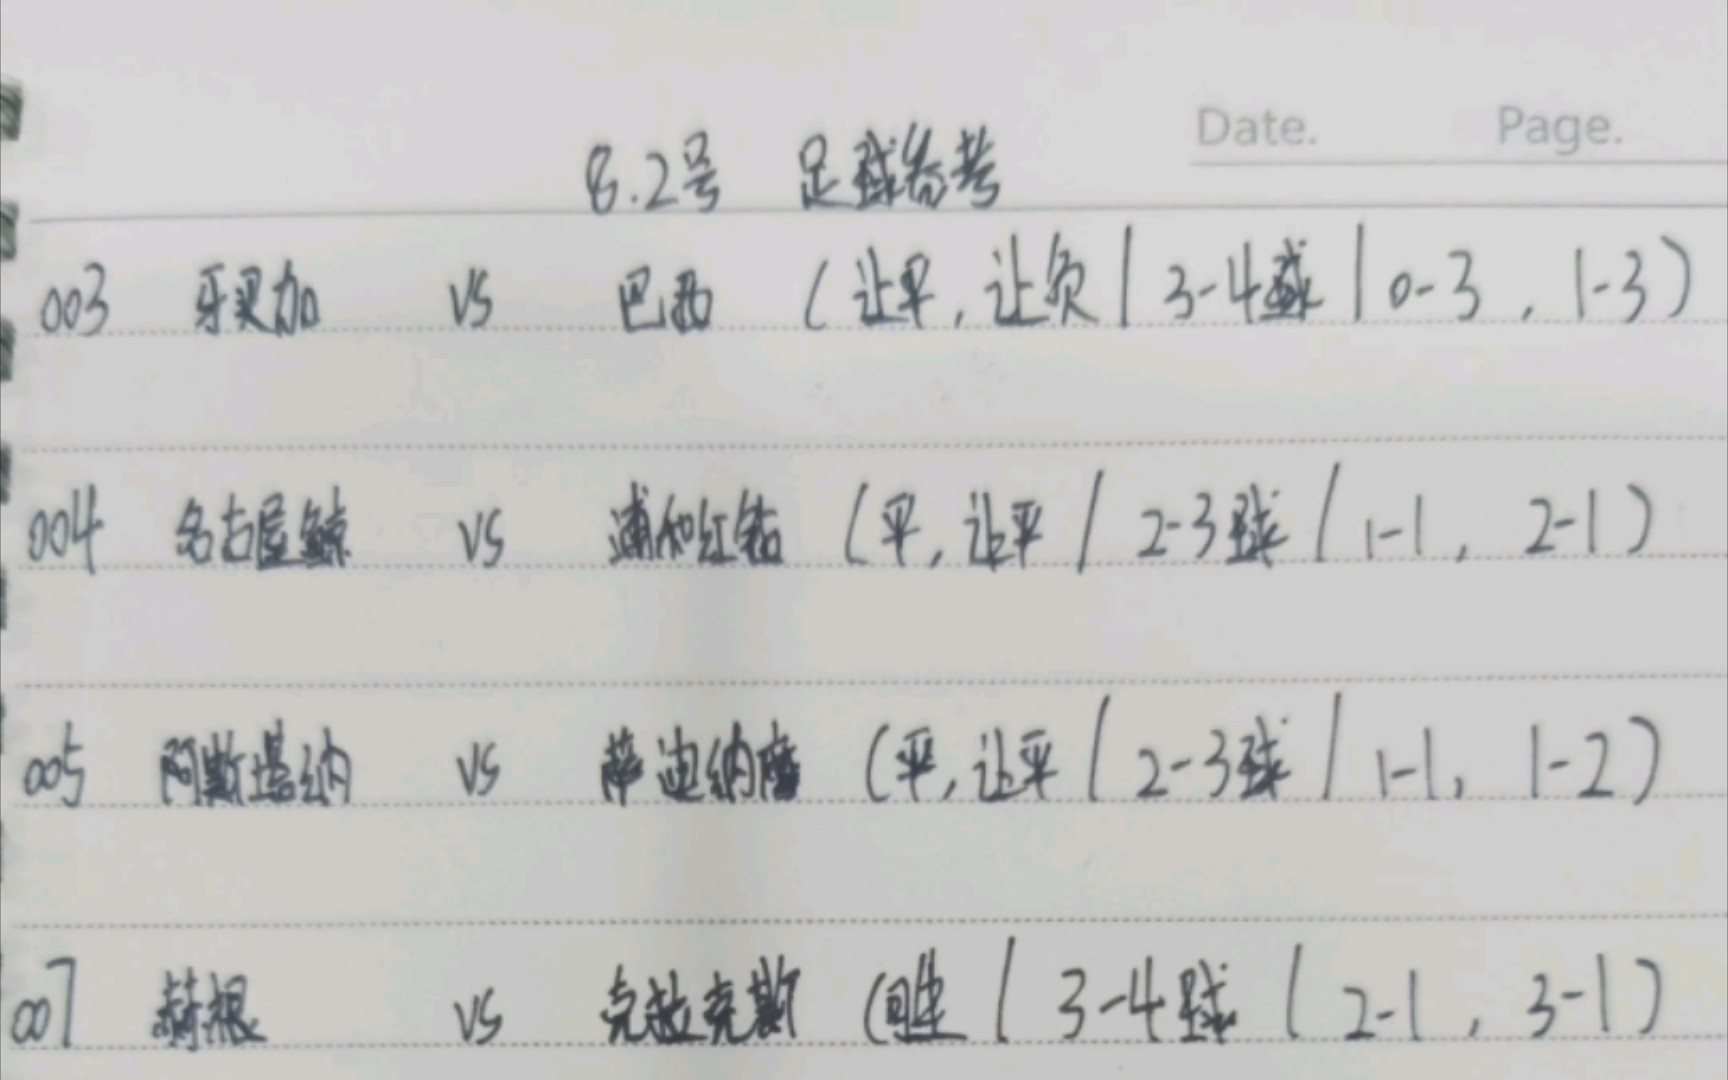 Date. Page.
8.2号 足球参考
003 牙买加 VS 巴西 (让平,让负|3-4球|0-3,1-3)
004 名古屋鲸 VS 浦和红钻 (平,让平|2-3球|1-1,2-1)
005 阿斯塔纳 VS 萨迪纳摩 (平,让平|2-3球|1-1,1-2)
007 赫根 VS 克拉克斯 (胜|3-4球|2-1,3-1)